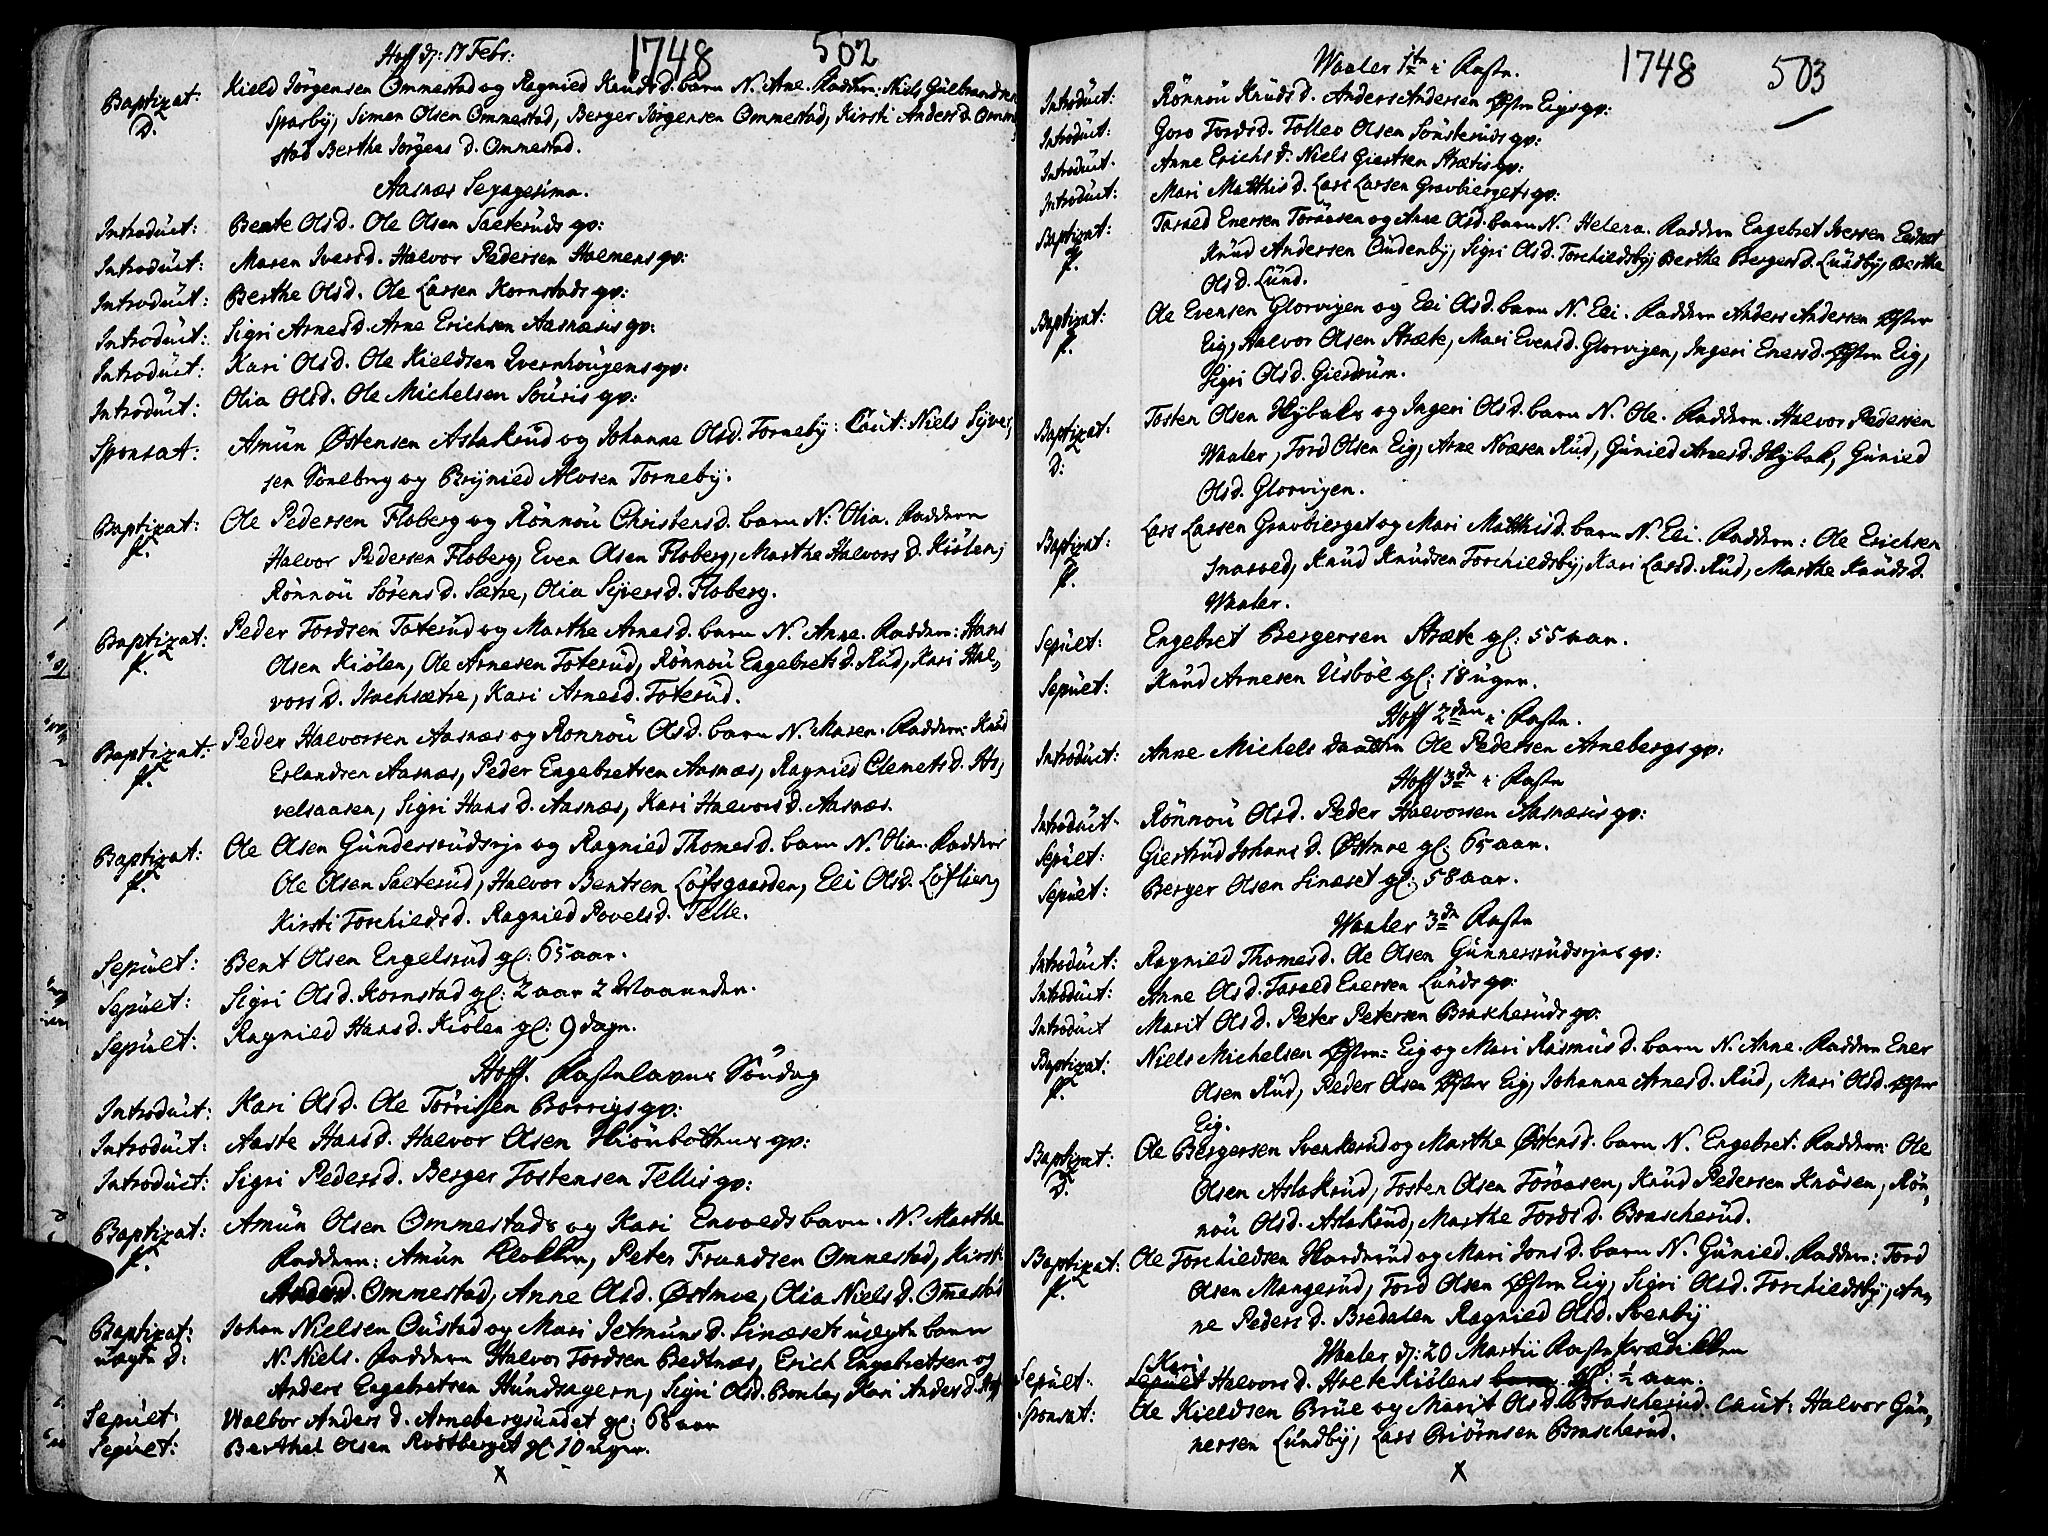 Hoff d: 17 Febr:
1748
502
Baptizat: D. Kield Jörgensen Ommestad og Ragnied Knüdsd. barn N. Arne. Faddern: Niels Gulbrandsen
Sparby, Simen Olsen Ommestad, Berger Jörgensen Ommestad, Kirsti Andersd. Omme
stad Berthe Jörgens d. Ommestad.
Aasnæs Sexagesima.
Introdüct: Bente Olsd. Ole Olsen Sæterüds qv:
Introdüct: Maren Iversd. Halvor Pedersen Holmens qv:
Introdüct: Berthe Olsd. Ole Larsen Kornstads qv:
Introdüct: Sigri Arnesd. Arne Erichsen Aasnæsis qv:
Introdüct: Kari Olsd. Ole Kieldsen Qvernhougens qv:
Introdüct: Olia Olsd. Ole Michelsen Söüris qv:
Sponsat: Amün Østensen Aslakrüd og Johanne Olsd. Torneby: Caut: Niels Syver,
sen Soneberg og Brynild Alvsen Torneby.
Baptizat: f. Ole Pedersen Floberg og Rönnoü Christensd. barn N: Olia. Faddern
Halvor Pedersen Floberg, Even Olsen Floberg, Marthe Halvors d. Kiölen,
Rönnoü Sörensd. Sætre, Olia Syversd. Floberg.
Baptizat: f. Peder Tordsen Toterüd og Marthe Arnesd. barn N. Anne. Faddern: Hans
Olsen Kiölen, Ole Arnesen Toterüd, Rönnoü Engebretsd. Rüd, Kari Hal,
vors d. Kochsætre, Kari Arnesd. Toterüd.
Baptizat: f. Peder Halvorsen Aasnæs og Ronnoü Olsd. barn N. Maren. Faddern: Knüd
Erlandsen Aasnæs, Peder Engebretsen Aasnæs, Ragnied Clemetsd. Ha,
velsaasen, Sigri Hansd. Aasnæs, Kari Halvorsd. Aasnæs.
Baptizat: f. Ole Olsen Gündersrüdseje og Ragnied Thomesd. barn N. Olia. Faddern
Ole Olsen Sæterüd, Halvor Bentsen Löfsgaarden, Eli Olsd. Löflien,
Kirsti Torchieldsd. Ragnied Povelsd. Telle.
Sepült: Bent Olsen Engelsrüd gl: 65 aar.
Sepült: Sigri Olsd. Kornstad gl: 2 aar 2 Maaneder.
Sepült: Ragnied Hansd. Kiölen gl: 9 dage.
Hoff. Fastelavns Söndag
Introdüct: Kari Olsd. Ole Törrissen Borrigs qv:
Introdüct: Aaste Hansd. Halvor Olsen Skiönbottens qv:
Introdüct: Sigri Pedersd. Berger Tostensen Tellis qv:
Baptizat: f. Amün Olsen Ommestads og Kari Envolds barn. N. Marthe
Faddern: Amün Klokken, Peter Trundsen Ommestad, Kirsti
Andersd. Ommestad, Anne Olsd. Østmoe, Olia Niels d. Ommestad
Baptizat: uægte D: Johan Nielsen Oustad og Mari Jetmünsd. Sinæsets uægte barn
N. Niels. Faddern Halvor Tordsen Bredtnæs, Erich Engebretsen og
Anders Engebretsen Hundsagern, Sigri Olsd. Kari Andersd.
Sepült: Walbor Anders d. Arnebergsündet gl: 68 aar
Sepült: Barthel Olsen Rustberget gl: 10 uger.
x
1748
503
Waaler 1te i Faste.
Introdüct: Rönnoü Knüdsd. Anders Andersen Østre Eigs qv:
Introdüct: Goro Tordsd. Tollev Olsen Sönsterüds qv:
Introdüct. Anne Erichsd. Niels Giertsen Strætis qv:
Introdüct: Mari Matthisd. Lars Larsen Gravbiergets qv:
Baptizat: f. Tarald Enersen Toraasen og Anne Olsd. barn N. Helena. Faddern Engebret Iversen
Knüd Andersen Oüdenby, Sigri Olsd. Torchieldsby, Berthe Bergersd. Lündby, Berthe
Olsd. Lünd.
Baptizat: f. Ole Evensen Glorvigen og Eli Olsd. barn N. Eli. Faddern Anders Andersen Øster
Eig, Halvor Olsen Stræte, Mari Evensd. Glorvigen, Ingeri Enersd. Østre Eig,
Sigri Olsd. Gierdrüm.
Baptizat: D: Tosten Olsen Hybaks og Ingeri Olsd. barn N. Ole. Faddern. Halvor Pedersen
Waaler, Tord Olsen Eig, Arne Noæsen Rüd, Günied Arnesd. Hybak, Günied
Olsd. Glorvigen.
Baptizat: f. Lars Larsen Gravbierget og Mari Matthisd. barn N. Eli. Faddern: Ole Erichsen
Snarved, Knüd Knüdsen Torchieldsby, Kari Larsd. Rüd, Marthe Knüdsd.
Waaler.
Sepült: Engebret Bergersen Stræte gl: 55 aar.
Sepült: Knüd Arnesen Üsböl gl: 18 uger.
Hoff 2den i Faste.
Introdüct: Anne Michels daatter Ole Pedersen Arnebergs qv:
Hoff 3de i Faste
Introdüct: Rönnoü Olsd. Peder Halvorsen Aasnæsis qv:
Sepült: Giertrüd Johans d. Østmoe gl: 65 aar.
Sepült: Berger Olsen Sinæset gl: 58 aar.
Waaler 3de Faste
Introdüct: Ragnied Thomesd. Ole Olsen Günnersrüdsejes qv:
Introdüct: Anne Olsd. Tarald Enersen Lünds qv:
Introdüct Marit Olsd. Peter Petersen Brascherüds qv:
Baptizat: f. Niels Michelsen Østre Eig og Mari Rasmüsd. barn N. Anne. Faddern Ener
Olsen Rüd, Peder Olsen Øster Eig, Johanne Arnesd. Rüd, Mari Olsd. Øster
Eig.
Baptizat: D. Ole Bergersen Svenkerüd og Marthe Östensd. barn N. Engebret. Faddern: Ole
Olsen Aslakrüd, Tosten Olsen Toraasen, Knüd Pedersen Knösen, Rön,
noü Olsd. Aslakrüd, Marthe Tordsd. Brascherüd.
Baptizat: f. Ole Torchieldsen Harderüd og Mari Jonsd. barn N. Günied. Faddern: Tord
Olsen Mangerüd, Tord Olsen Østre Eig, Sigri Olsd. Torchieldsby, An,
ne Peders d. Bredalen Ragnied Olsd. Svenby
Waaler d: 20 Martii Fasteprædikken
Sepült. Kari Halvorsd. Holte Kiölens gl: 1/2 aar.
Sponsat: Ole Kieldsen Brüe og Marit Olsd. Brascherüd. Caut: Halvor Gün,
nersen Lündby, Lars Biörnsen Brascherüd.
x